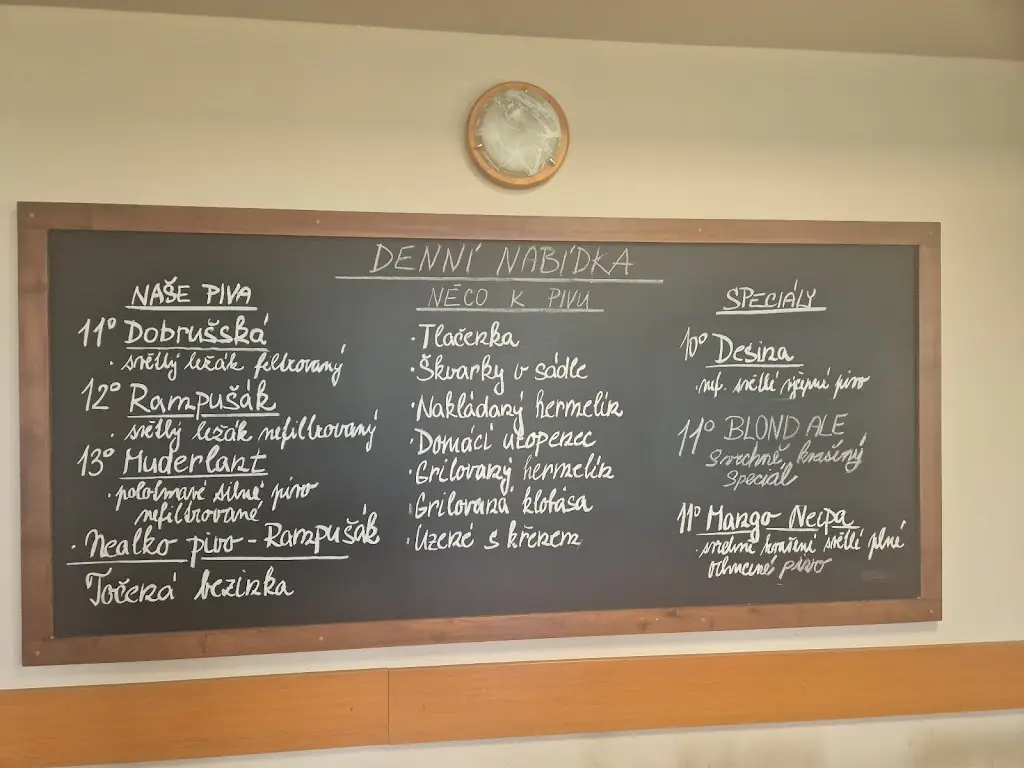 DENNÍ NABÍDKA
NAŠE PIVA
11° Dobrušská
· světlý ležák filtrovaný
12° Rampušák
· světlý ležák nefiltrovaný
13° Muderlant
· polotmavé silné pivo
nefiltrované
· Nealko pivo - Rampušák
Točená bezinka
NĚCO K PIVU
· Tlačenka
· Škvarky v sádle
· Nakládaný hermelín
· Domácí utopenec
· Grilovaný hermelín
· Grilovaná klobása
· Uzené s křenem
SPECIÁLY
10° Desina
· nef. světlé výčepní pivo
11° BLOND ALE
Svrchně kvašený
Speciál
11° Mango Neipa
· svrchně kvašené světlé plné
ochucené pivo